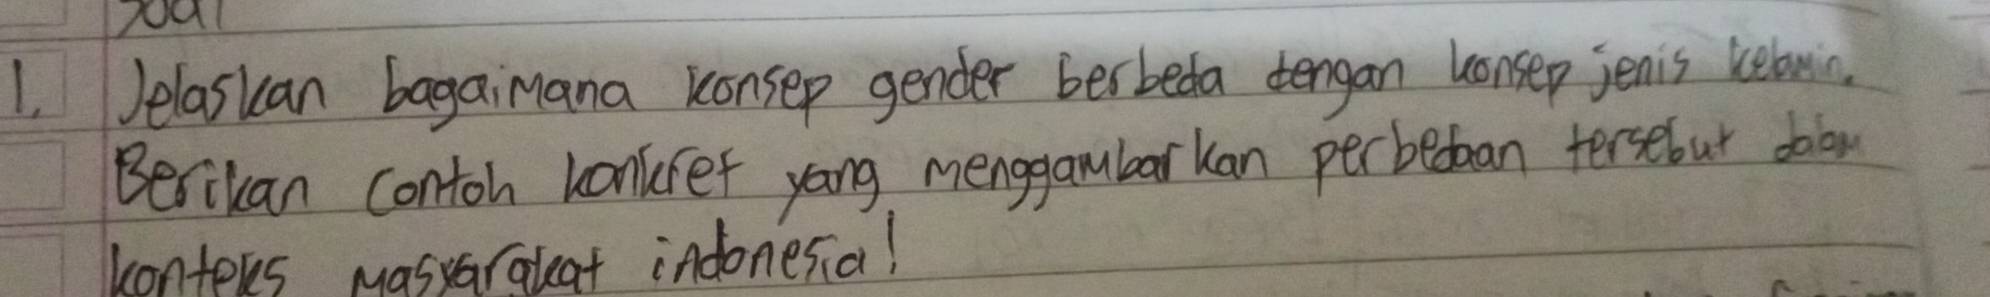 soal
1. Jelaskan bagaimana konsep gender berbeda dengan konsep jenis kelamin.
Berikan contoh konkret yang menggambarkan perbedaan tersebut dalam
konteks masyarakat indonesia!